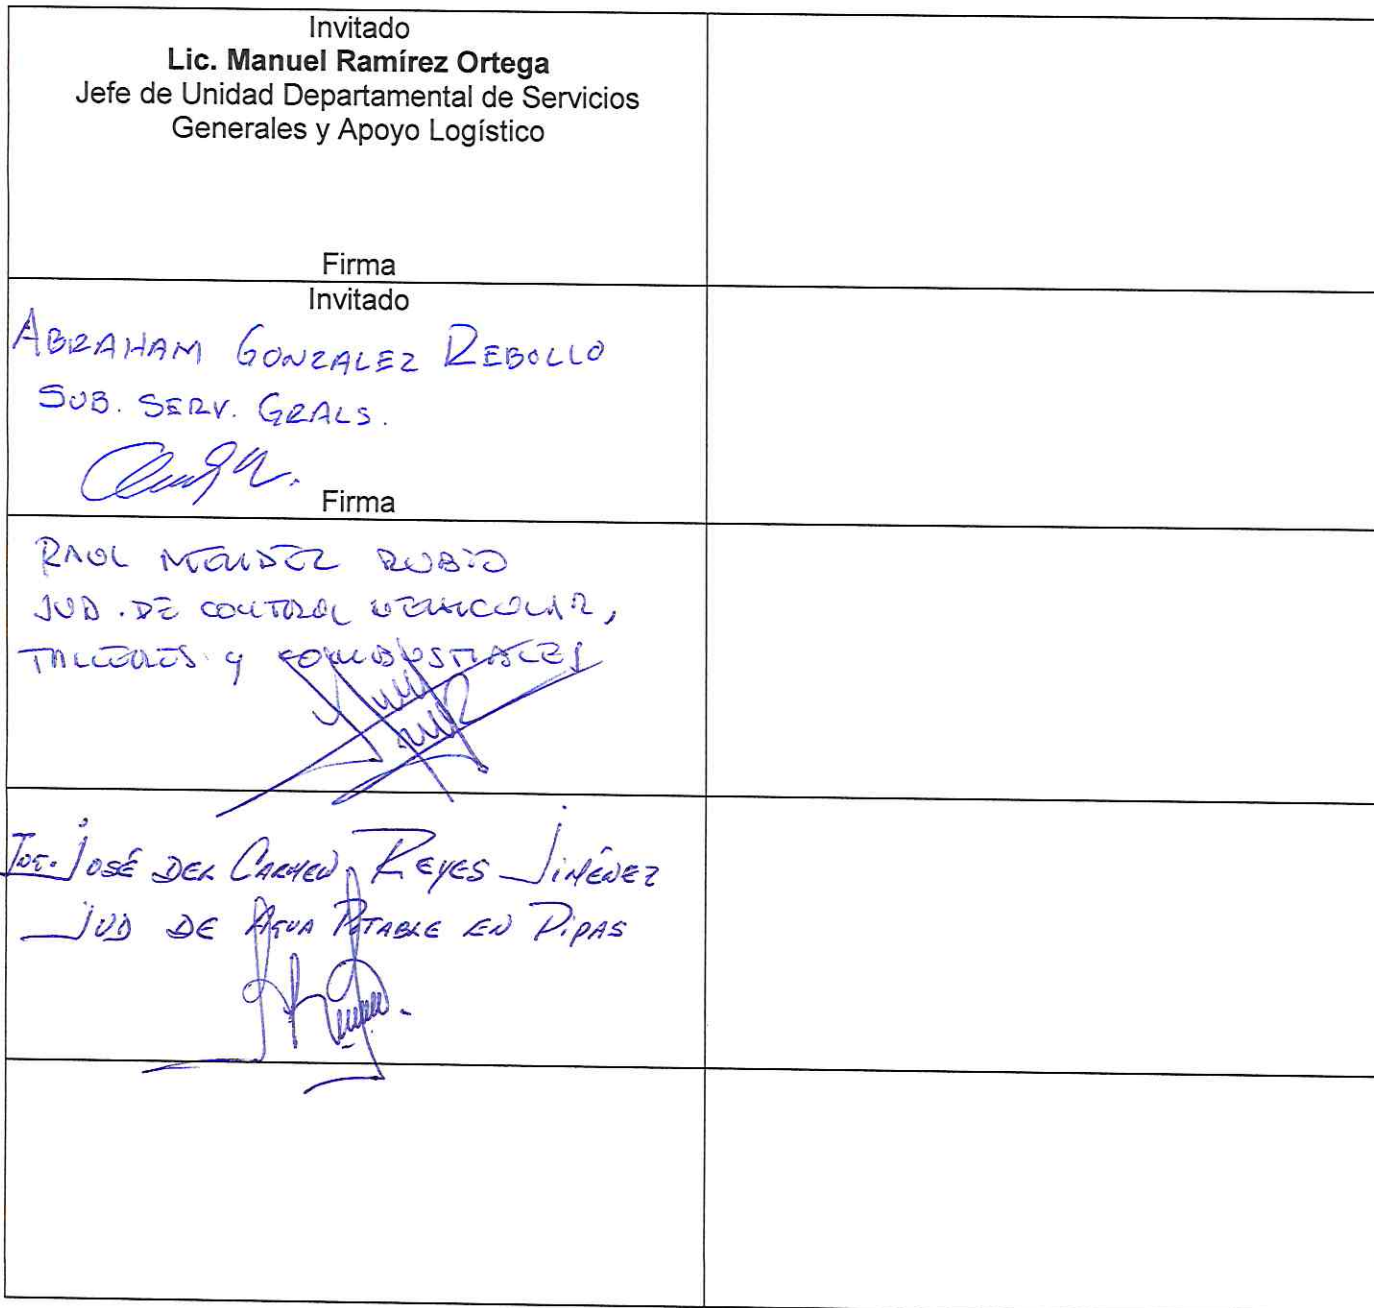 Invitado
Lic. Manuel Ramírez Ortega
Jefe de Unidad Departamental de Servicios
Generales y Apoyo Logístico
Firma
Invitado
ABRAHAM GONZALEZ REBOLLO
SUB. SERV. GRALS.
Firma
RAUL MENDEZ RUBIO
JUD. DE CONTROL VEHICULAR,
TALLERES y COMBUSTIBLES
JOSÉ DEL CARMEN REYES JIMÉNEZ
JUD DE AGUA POTABLE EN PIPAS